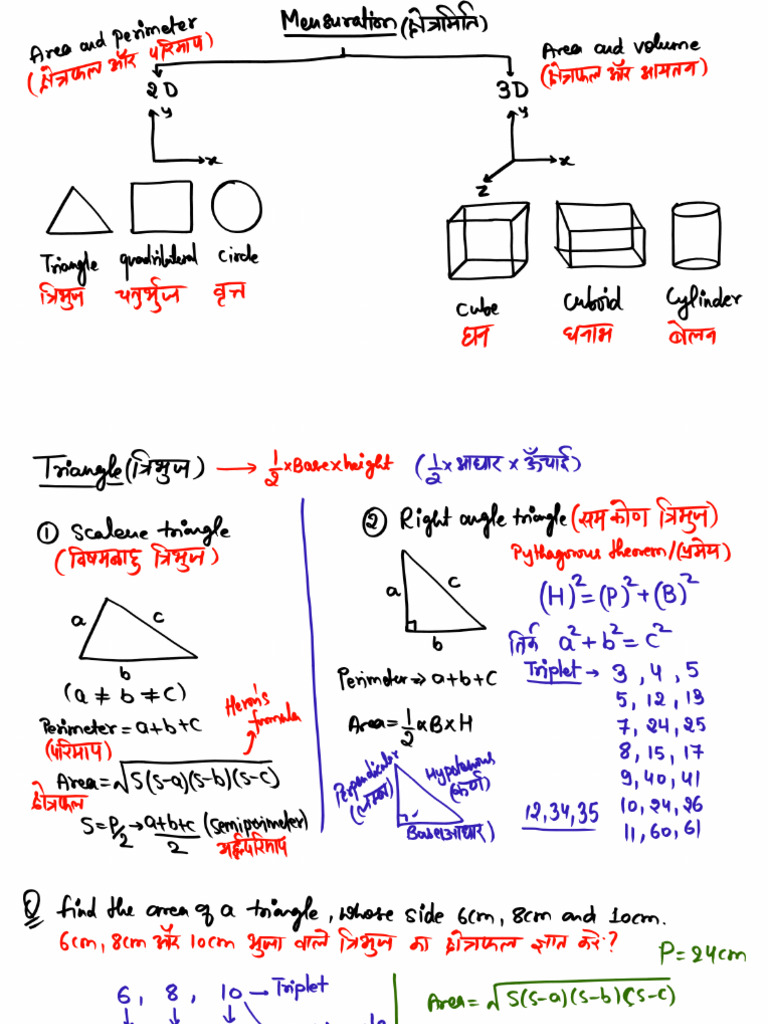 Mensuration (क्षेत्रमिति)
Area and perimeter
(क्षेत्रफल और परिमाप)
Area and volume
(क्षेत्रफल और आयतन)
2D
3D
y
x
y
x
z
Triangle quadrilateral Circle
त्रिभुज चतुर्भुज वृत्त
Cube Cuboid Cylinder
घन घनाभ बेलन
Triangle (त्रिभुज) → 1/2 × Base × height (1/2 × आधार × ऊँचाई)
① Scalene triangle
(विषमबाहु त्रिभुज)
a
c
b
(a ≠ b ≠ c)
Perimeter = a+b+c
(परिमाप)
Heron's
formula
Area = √S(S-a)(S-b)(S-c)
क्षेत्रफल
S = P/2 → a+b+c/2 (Semiperimeter)
अर्द्धपरिमाप
② Right angle triangle (समकोण त्रिभुज)
Pythagorus theorem/(प्रमेय)
a
c
b
(H)² = (P)² + (B)²
a² + b² = c²
Perimeter ⇒ a+b+c
Area = 1/2 × B × H
Triplet → 3, 4, 5
5, 12, 13
7, 24, 25
8, 15, 17
9, 40, 41
10, 24, 26
11, 60, 61
12, 34, 35
Perpendicular
(लम्ब)
Hypotenous
(कर्ण)
Base(आधार)
Q find the area of a triangle, whose side 6cm, 8cm and 10cm.
6cm, 8cm और 10cm भुजा वाले त्रिभुज का क्षेत्रफल ज्ञात करें?
P = 24cm
6, 8, 10 → Triplet
Area = √S(S-a)(S-b)(S-c)